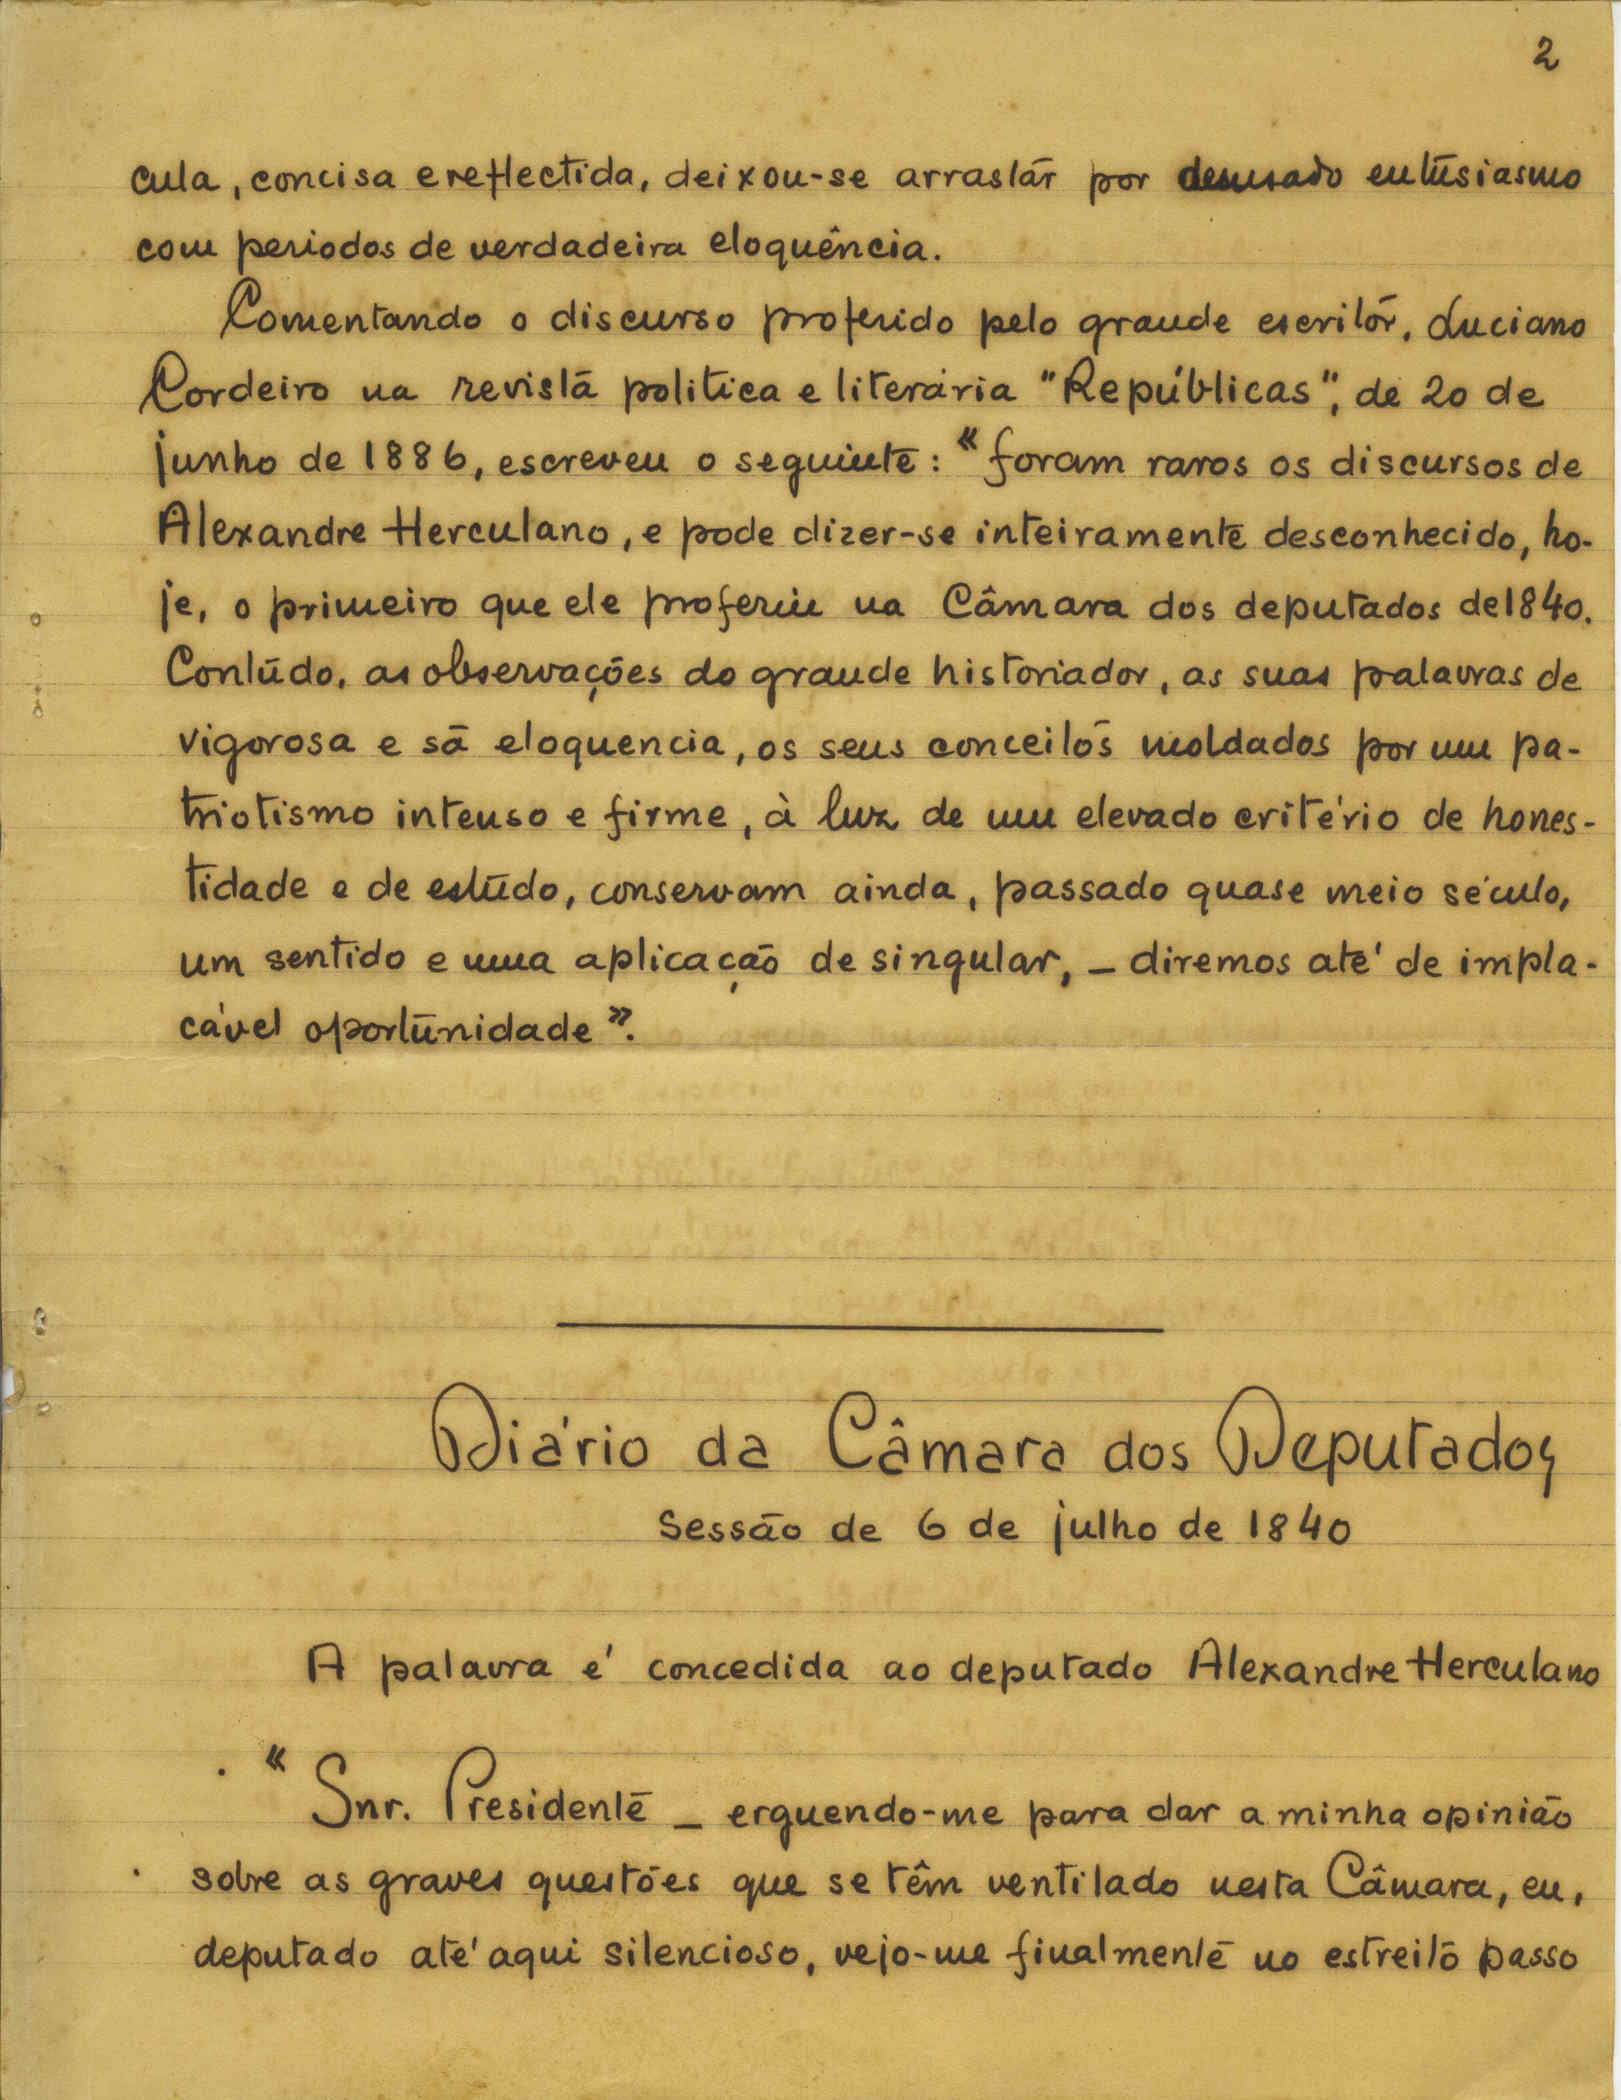 2
cula, concisa e reflectida, deixou-se arrastar por desusado entusiasmo
com periodos de verdadeira eloquência.
Comentando o discurso proferido pelo grande escritor, Luciano
Cordeiro na revista politica e literária "Repúblicas", de 20 de
junho de 1886, escreveu o seguinte: "foram raros os discursos de
Alexandre Herculano, e pode dizer-se inteiramente desconhecido, ho-
je, o primeiro que ele proferiu na Câmara dos deputados de 1840.
Contudo, as observações do grande historiador, as suas palavras de
vigorosa e sã eloquencia, os seus conceitos moldados por um pa-
triotismo intenso e firme, à luz de um elevado critério de hones-
tidade e de estudo, conservam ainda, passado quase meio século,
um sentido e uma aplicação de singular, _ diremos até de impla-
cável oportunidade".
Diário da Câmara dos Deputados
Sessão de 6 de julho de 1840
A palavra é concedida ao deputado Alexandre Herculano
. "Snr. Presidente _ erguendo-me para dar a minha opinião
. sobre as graves questões que se têm ventilado nesta Câmara, eu,
deputado até aqui silencioso, vejo-me finalmente no estreito passo